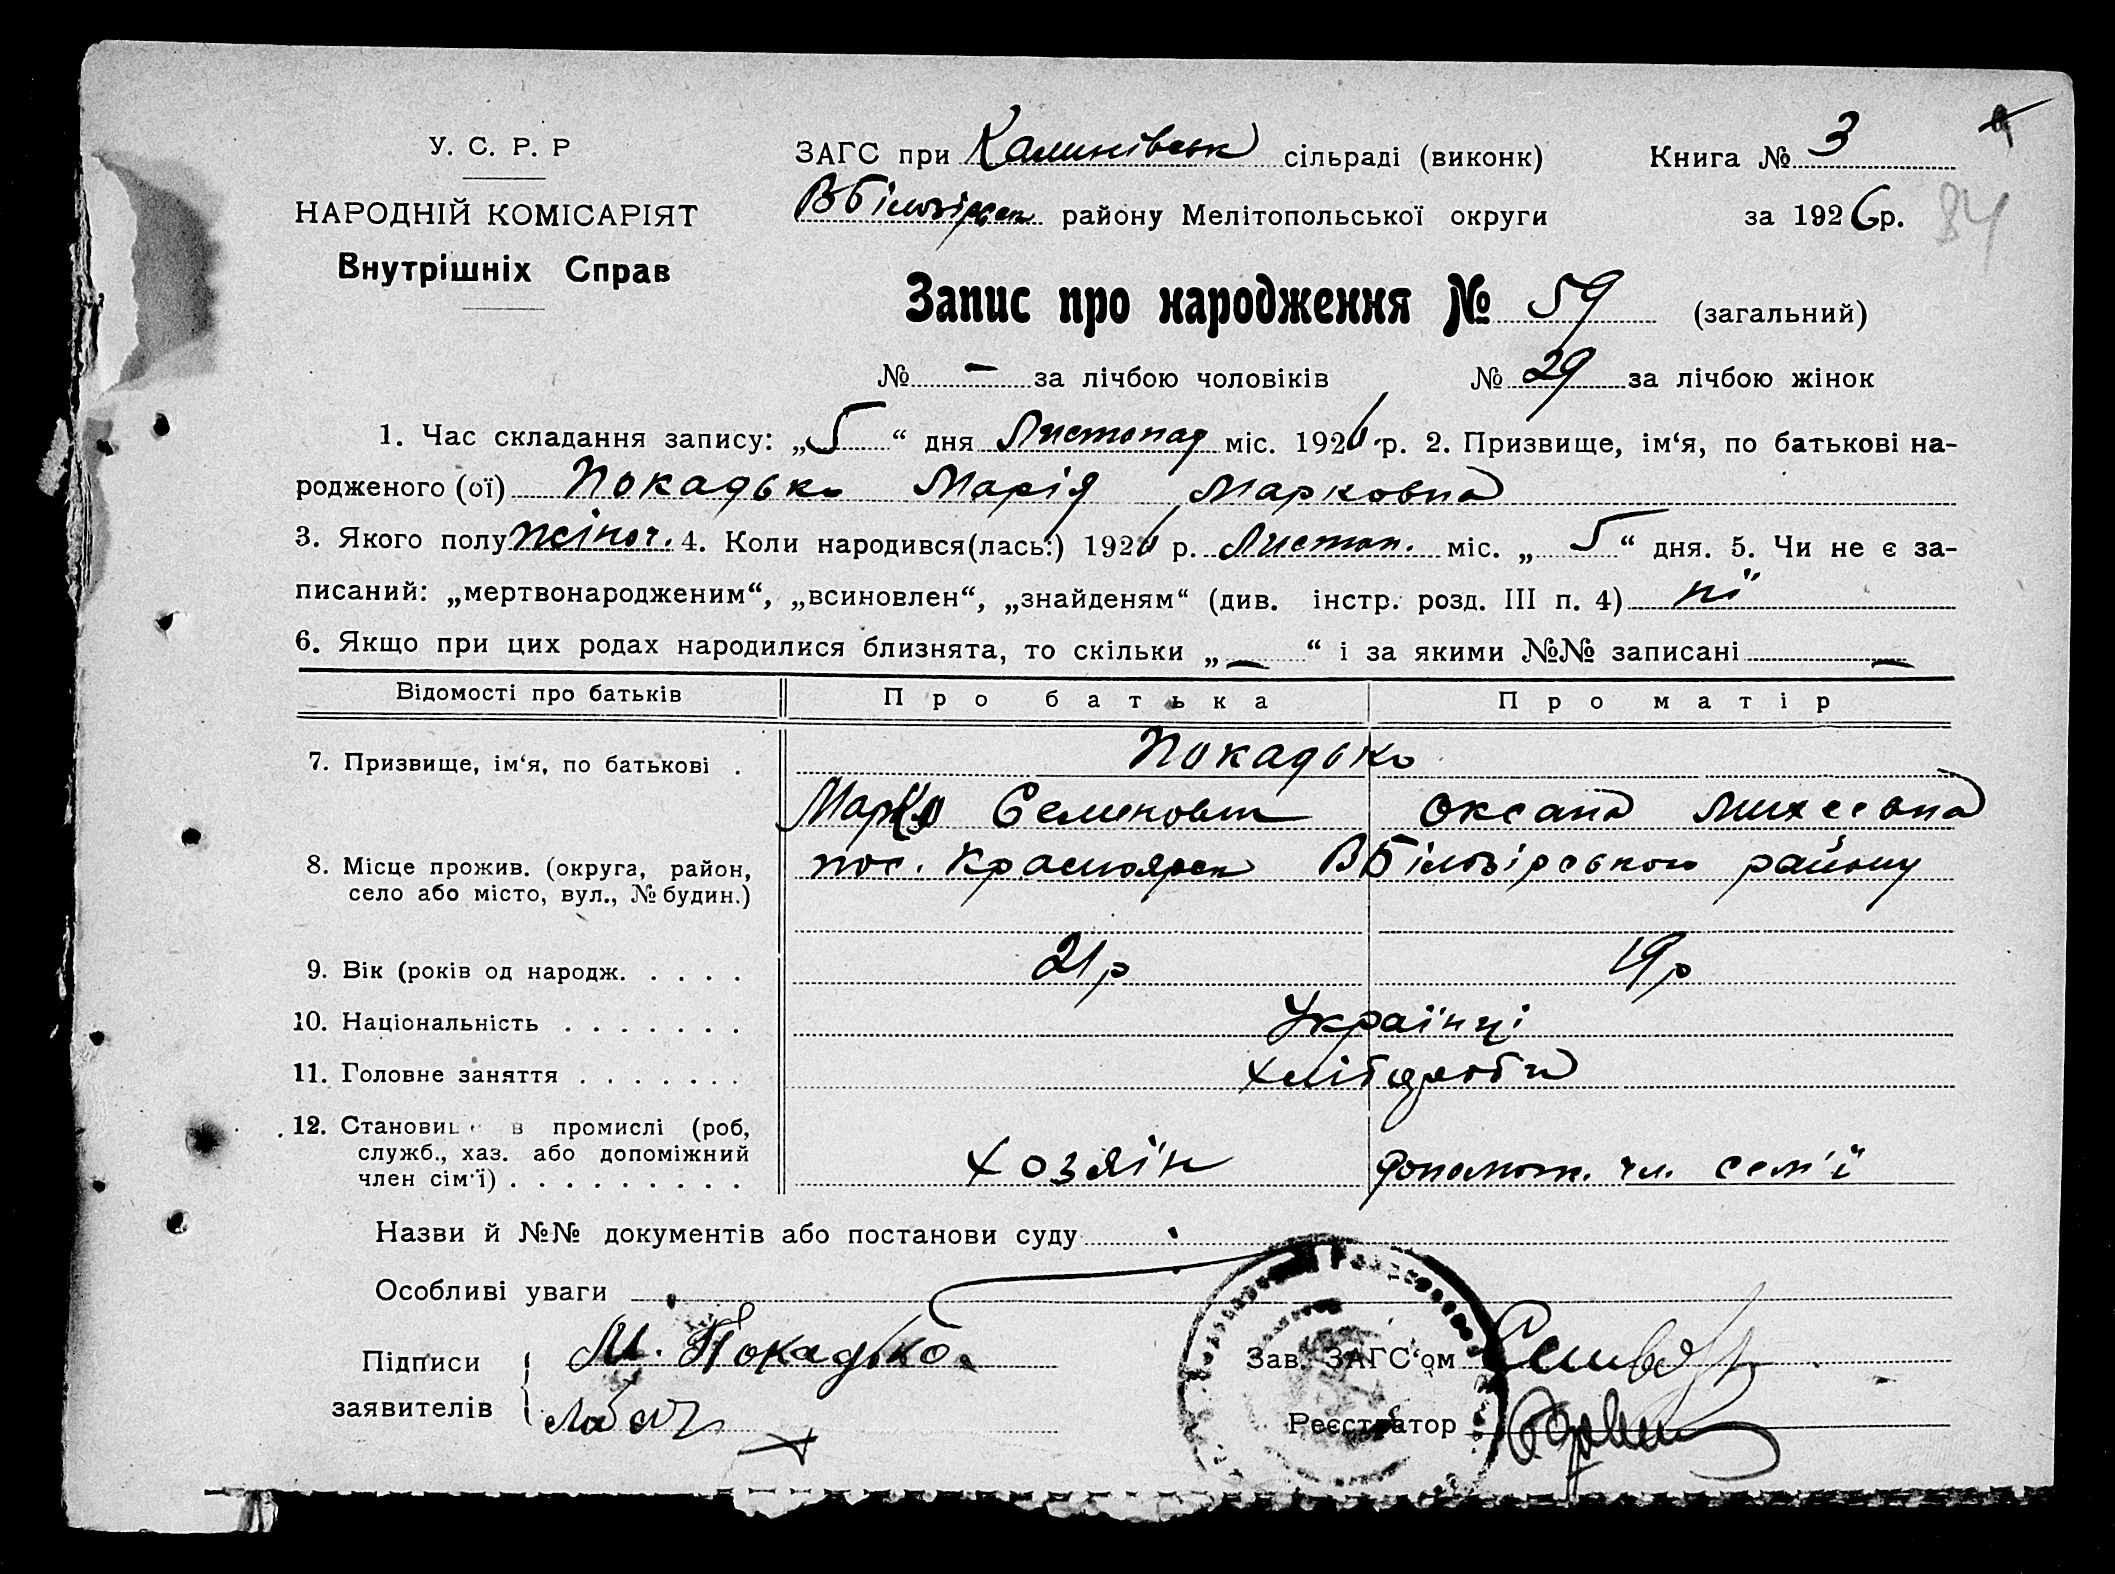 У. С. Р. Р
НАРОДНІЙ КОМІСАРІЯТ
Внутрішніх Справ
ЗАГС при Калинівськ сільраді (виконк)
Книга № 3
ВБілозірськ району Мелітопольської округи
за 1926 р.
84
Запис про народження № 59 (загальний)
№ — за лічбою чоловіків № 29 за лічбою жінок
1. Час складання запису: „5“ дня Листопад міс. 1926 р. 2. Призвище, ім‘я, по батькові на-
родженого (ої) Покадько Марія Марковна
3. Якого полу жіноч. 4. Коли народився(лась:) 1926 р. Листоп. міс. „5“ дня. 5. Чи не є за-
писаний: „мертвонародженим“, „всиновлен“, „знайденям“ (див. інстр. розд. III п. 4) ні
6. Якщо при цих родах народилися близнята, то скільки „—“ і за якими №№ записані —
Відомості про батьків Про батька Про матір
7. Призвище, ім‘я, по батькові . Покадько
Марко Семенович Оксана Михеевна
8. Місце прожив. (округа, район, пос. Красноярськ ВБілозірського району
село або місто, вул., № будин.)
9. Вік (років од народж. . . . . 21 р 19 р
10. Національність . . . . . . . Українці
11. Головне заняття . . . . . . . хлібороби
12. Становище в промислі (роб,
служб., хаз. або допоміжний хозяїн допомож. чл. сем'ї
член сім'ї) . . . . . . . . .
Назви й №№ документів або постанови суду
Особливі уваги
Підписи М. Покадько
заявителів
Зав. ЗАГС‘ом
Реєстратор